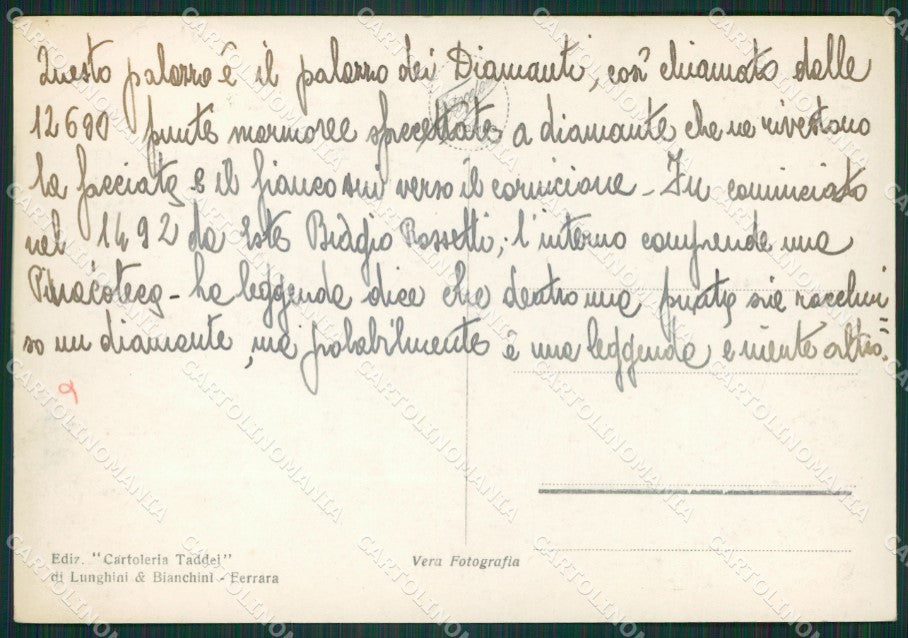 Questo palazzo è il palazzo dei Diamanti, così chiamato dalle
12600 punte marmoree a diamante che ne rivestono
la facciata e il fianco sui verso il cornicione - Fu cominciato
nel 1492 da Biagio Rossetti; l'interno comprende una
Pinacoteca - La leggenda dice che dentro una punta sia racchiu=
so un diamante, ma probabilmente è una leggenda e niente altro.
Ediz. "Cartoleria Taddei"
di Lunghini & Bianchini - Ferrara
Vera Fotografia
CARTOLINOMANIA